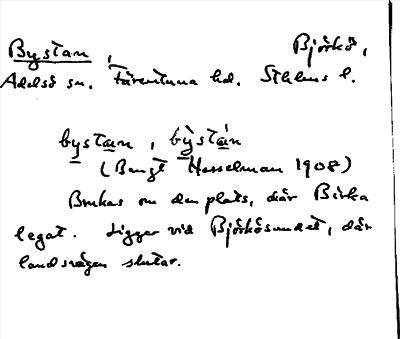 Bystan, Björkö,
Adelsö sn. Färentuna hd. Sthlms l.
bystan, bystán
(Bengt Hesselman 1908)
Brukas om den plats, där Birka
legat. Ligger vid Björkösundet, där
landsvägen slutar.